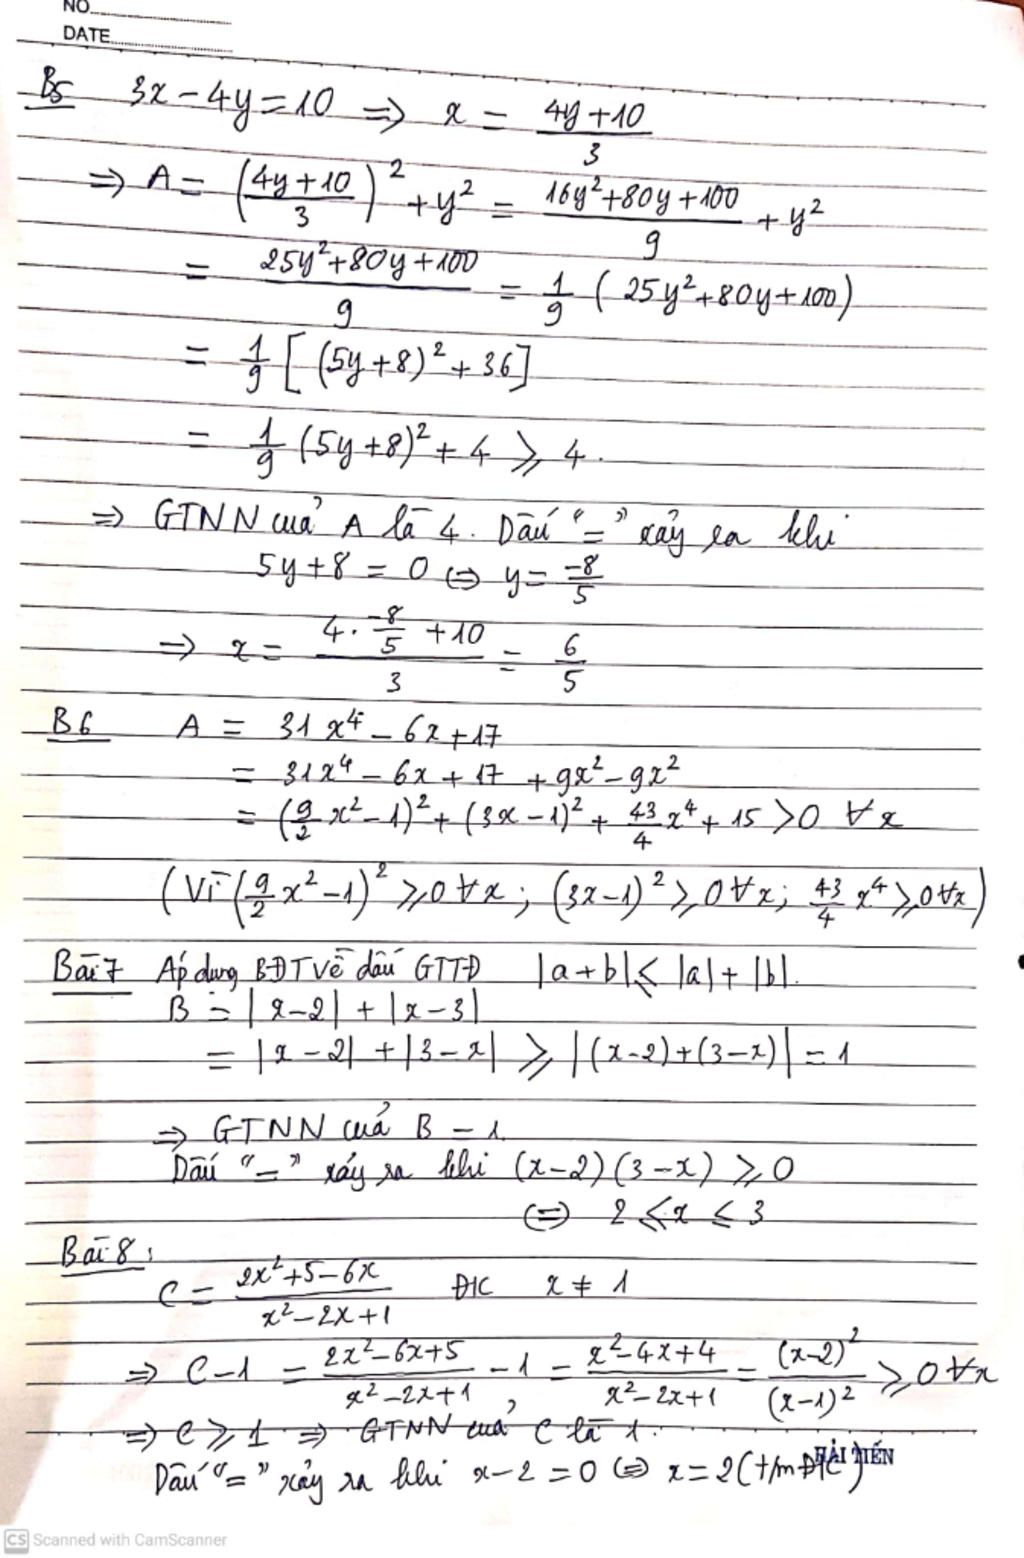 NO.
DATE
B5 3x - 4y = 10 => x = (4y + 10)/3
=> A = ((4y + 10)/3)² + y² = (16y² + 80y + 100)/9 + y²
= (25y² + 80y + 100)/9 = 1/9 (25y² + 80y + 100)
= 1/9 [(5y + 8)² + 36]
= 1/9 (5y + 8)² + 4 ⩾ 4.
=> GTNN của A là 4. Dấu "=" xảy ra khi
5y + 8 = 0 <=> y = -8/5
=> x = (4 . -8/5 + 10)/3 = 6/5
B6 A = 31x⁴ - 6x + 17
= 31x⁴ - 6x + 17 + 9x² - 9x²
= (9/2 x² - 1)² + (3x - 1)² + 43/4 x⁴ + 15 > 0 ∀x
(Vì (9/2 x² - 1)² ⩾ 0 ∀x; (3x - 1)² ⩾ 0 ∀x; 43/4 x⁴ ⩾ 0 ∀x)
Bài 7 Áp dụng BĐT về dấu GTTĐ |a + b| ⩽ |a| + |b|.
B = |x - 2| + |x - 3|
= |x - 2| + |3 - x| ⩾ |(x - 2) + (3 - x)| = 1
=> GTNN của B = 1.
Dấu "=" xảy ra khi (x - 2)(3 - x) ⩾ 0
<=> 2 ⩽ x ⩽ 3
Bài 8:
C = (2x² + 5 - 6x)/(x² - 2x + 1) ĐK x ≠ 1
=> C - 1 = (2x² - 6x + 5)/(x² - 2x + 1) - 1 = (x² - 4x + 4)/(x² - 2x + 1) = (x - 2)²/(x - 1)² ⩾ 0 ∀x
=> C ⩾ 1 => GTNN của C là 1.
Dấu "=" xảy ra khi x - 2 = 0 <=> x = 2 (t/m ĐK)
HẢI TIẾN
CS Scanned with CamScanner